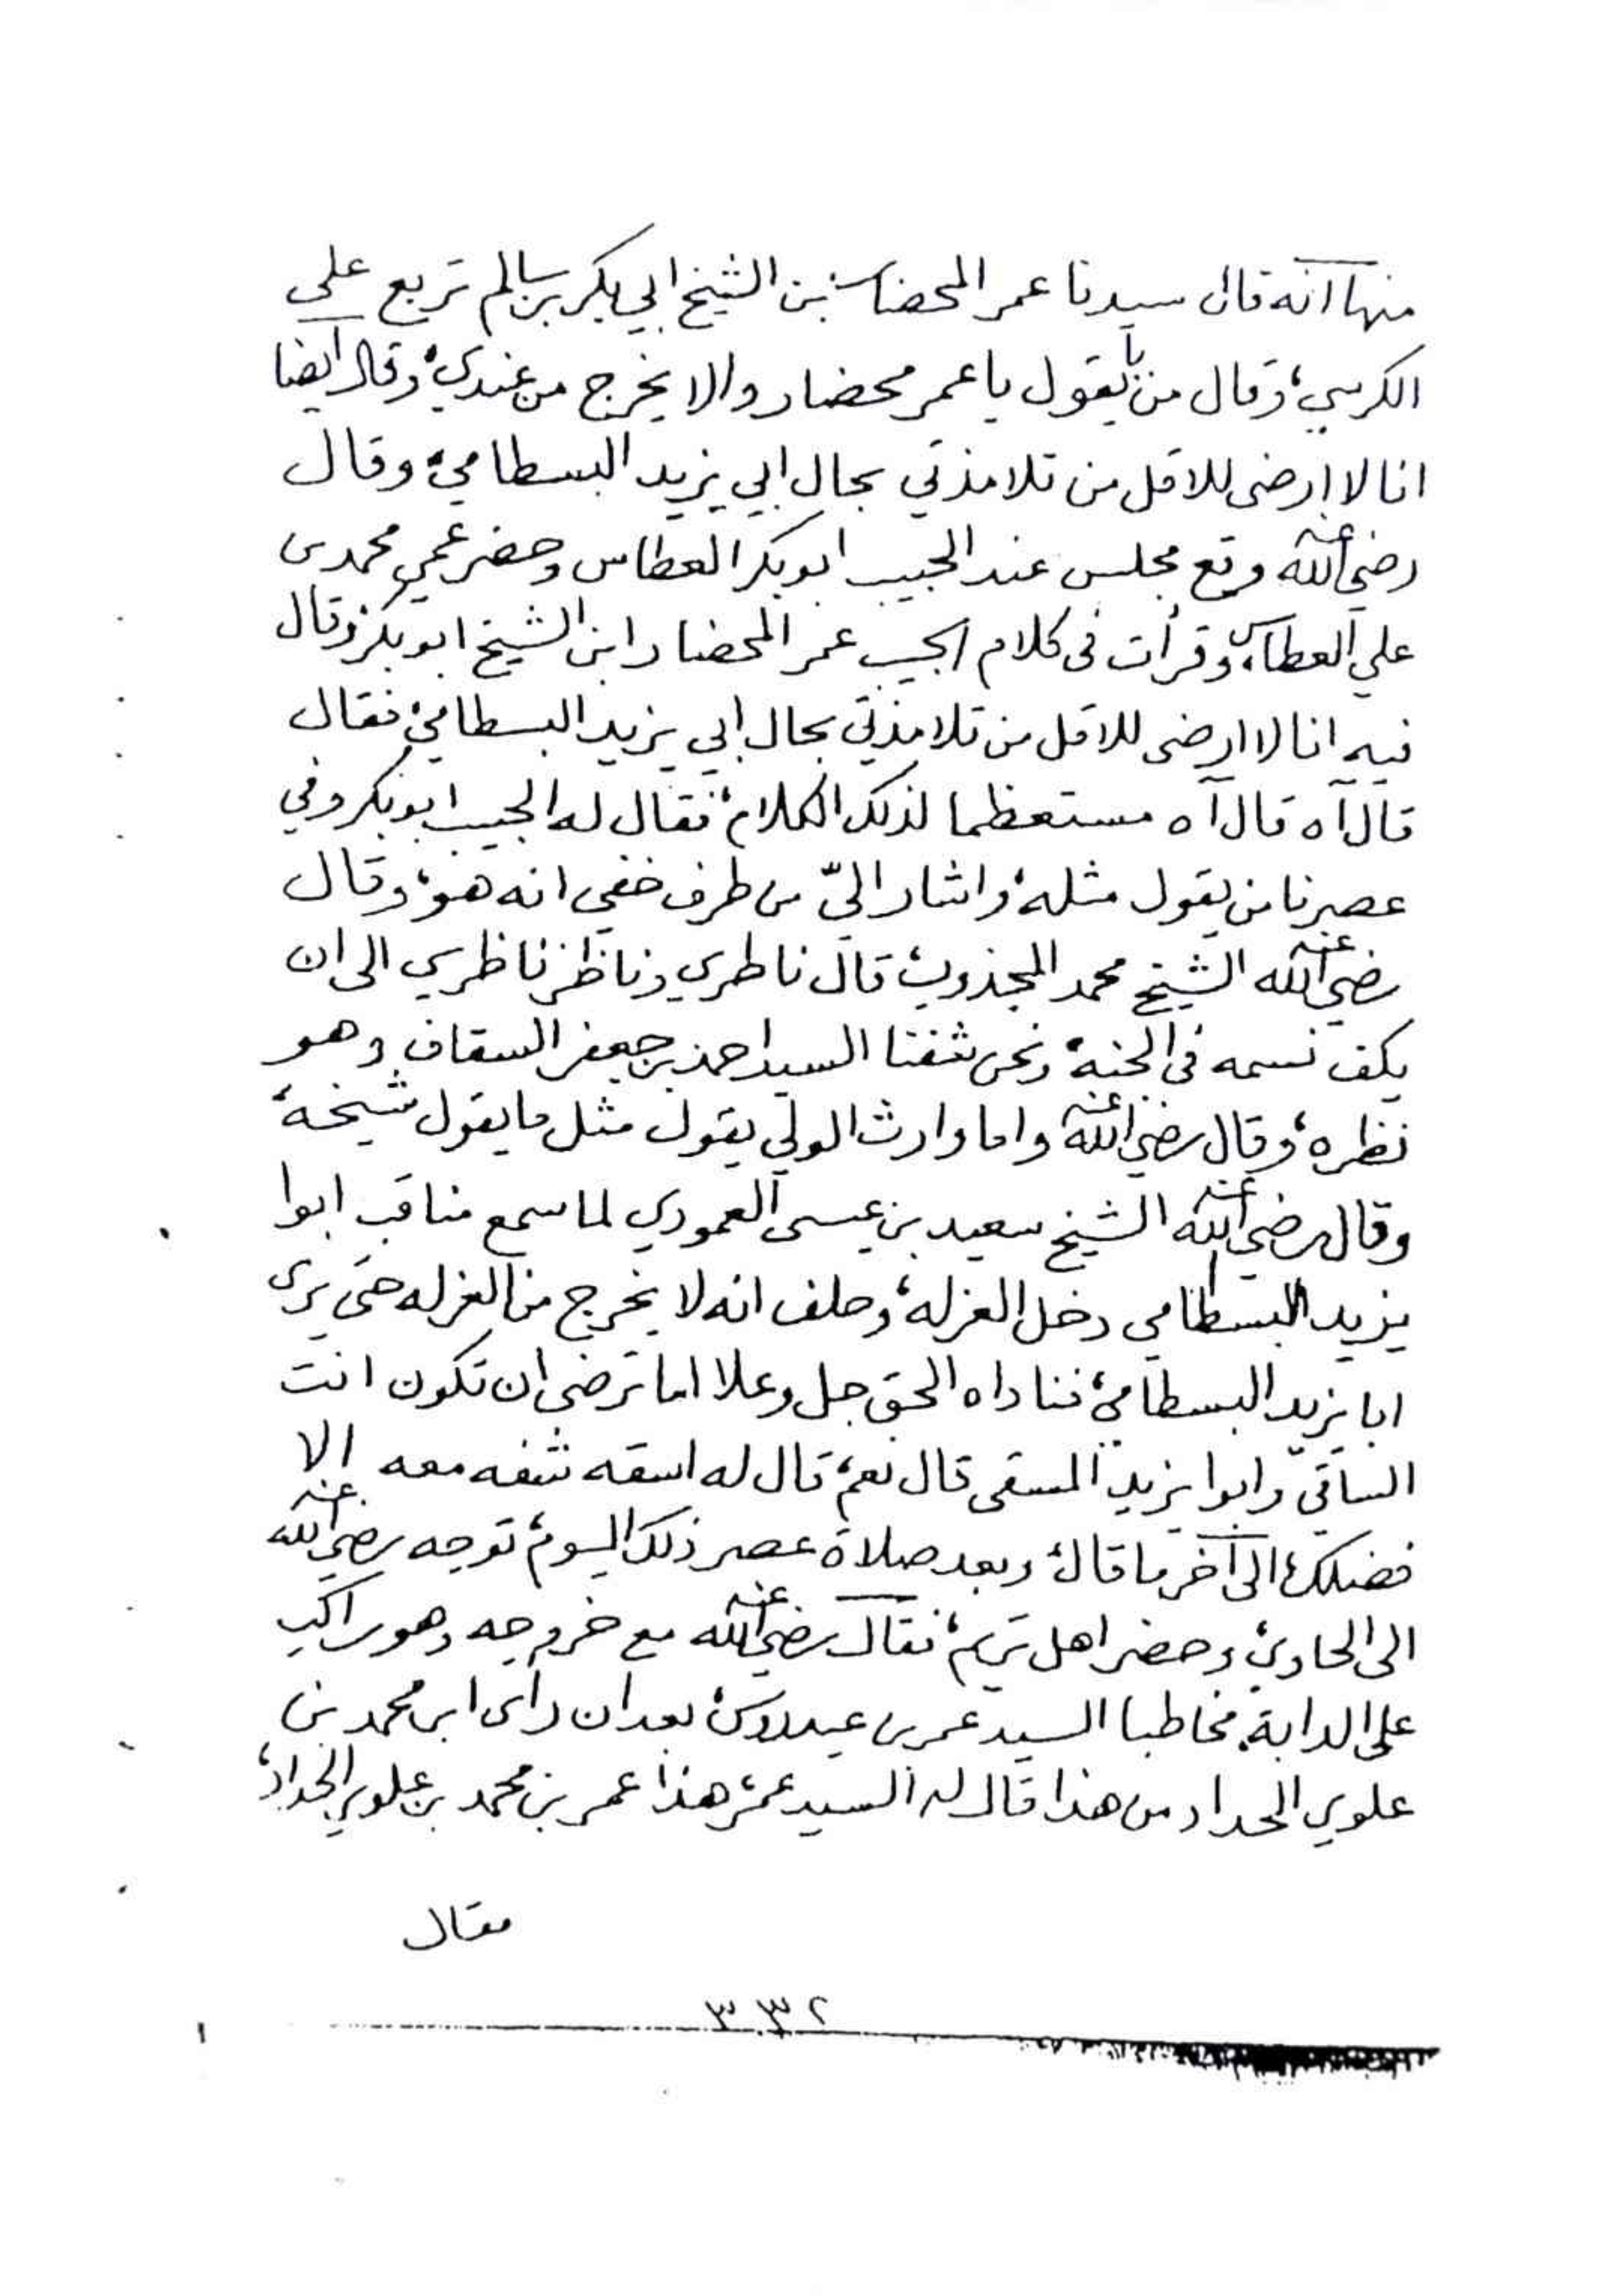 منها انه قال سيدنا عمر المحضار بن الشيخ ابي بكر بن سالم تربع على
الكرسي، وقال من بايقول يا عمر محضار والا يخرج من عندي، وقال ايضا
انا لا ارضى للاقل من تلامذتي بحال ابي يزيد البسطامي، وقال
رضي الله عنه وقع مجلس عند الحبيب ابو بكر العطاس وحضر عمي محمد بن
علي العطاس، وقرأت في كلام الحبيب عمر المحضار ابن الشيخ ابو بكر وقال
فيه انا لا ارضى للاقل من تلامذتي بحال ابي يزيد البسطامي، فقال
قال آه قال آه مستعظما لذلك الكلام، فقال له الحبيب ابو بكر وفي
عصرنا من يقول مثله، واشار اليّ من طرف خفي انه هو، وقال
رضي الله عنه الشيخ محمد المجذوب، قال ناظري وناظر ناظري الى ان
يكف نسمه في الجنة، ونحن شفنا السيد احمد بن جعفر السقاف وهو
نظره، وقال رضي الله عنه واما وارث الولي يقول مثل ما يقول شيخه،
وقال رضي الله عنه الشيخ سعيد بن عيسى العمودي لما سمع مناقب ابوا
يزيد البسطامي دخل العزله، وحلف انه لا يخرج من العزله حتى يرى
ابا يزيد البسطامي، فناداه الحق جل وعلا اما ترضى ان تكون انت
الساقي وابوا يزيد المسقى قال نعم، قال له اسقه شفه معه الا
فضلك، الى آخر ما قال، وبعد صلاة عصر ذلك اليوم، توجه رضي الله عنه
الى الحاوي، وحضر اهل تريم، فقال رضي الله عنه مع خروجه وهو راكب
على الدابة، مخاطبا السيد عمر بن عيدروس، بعد ان رأى ابن محمد بن
علوي الحداد من هذا قال له السيد عمر، هذا عمر بن محمد بن علوي الحداد،
فقال
٣٣٢